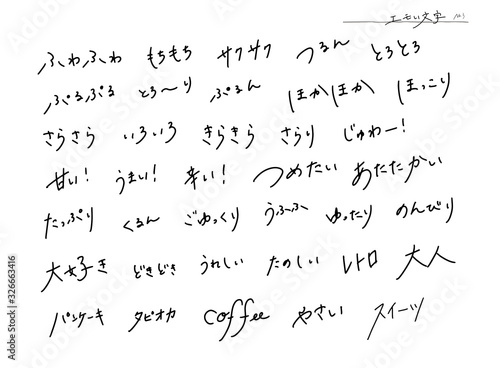 エモい文字 No3
ふわふわ もちもち サクサク つるん とろとろ
ぷるぷる とろ〜り ぷるん ほかほか ほっこり
さらさら いろいろ きらきら さらり じゅわー!
甘い! うまい! 辛い! つめたい あたたかい
たっぷり くるん ごゆっくり うふふ ゆったり のんびり
大好き どきどき うれしい たのしい レトロ 大人
パンケーキ タピオカ coffee やさい スイーツ
Adobe Stock | #326663416